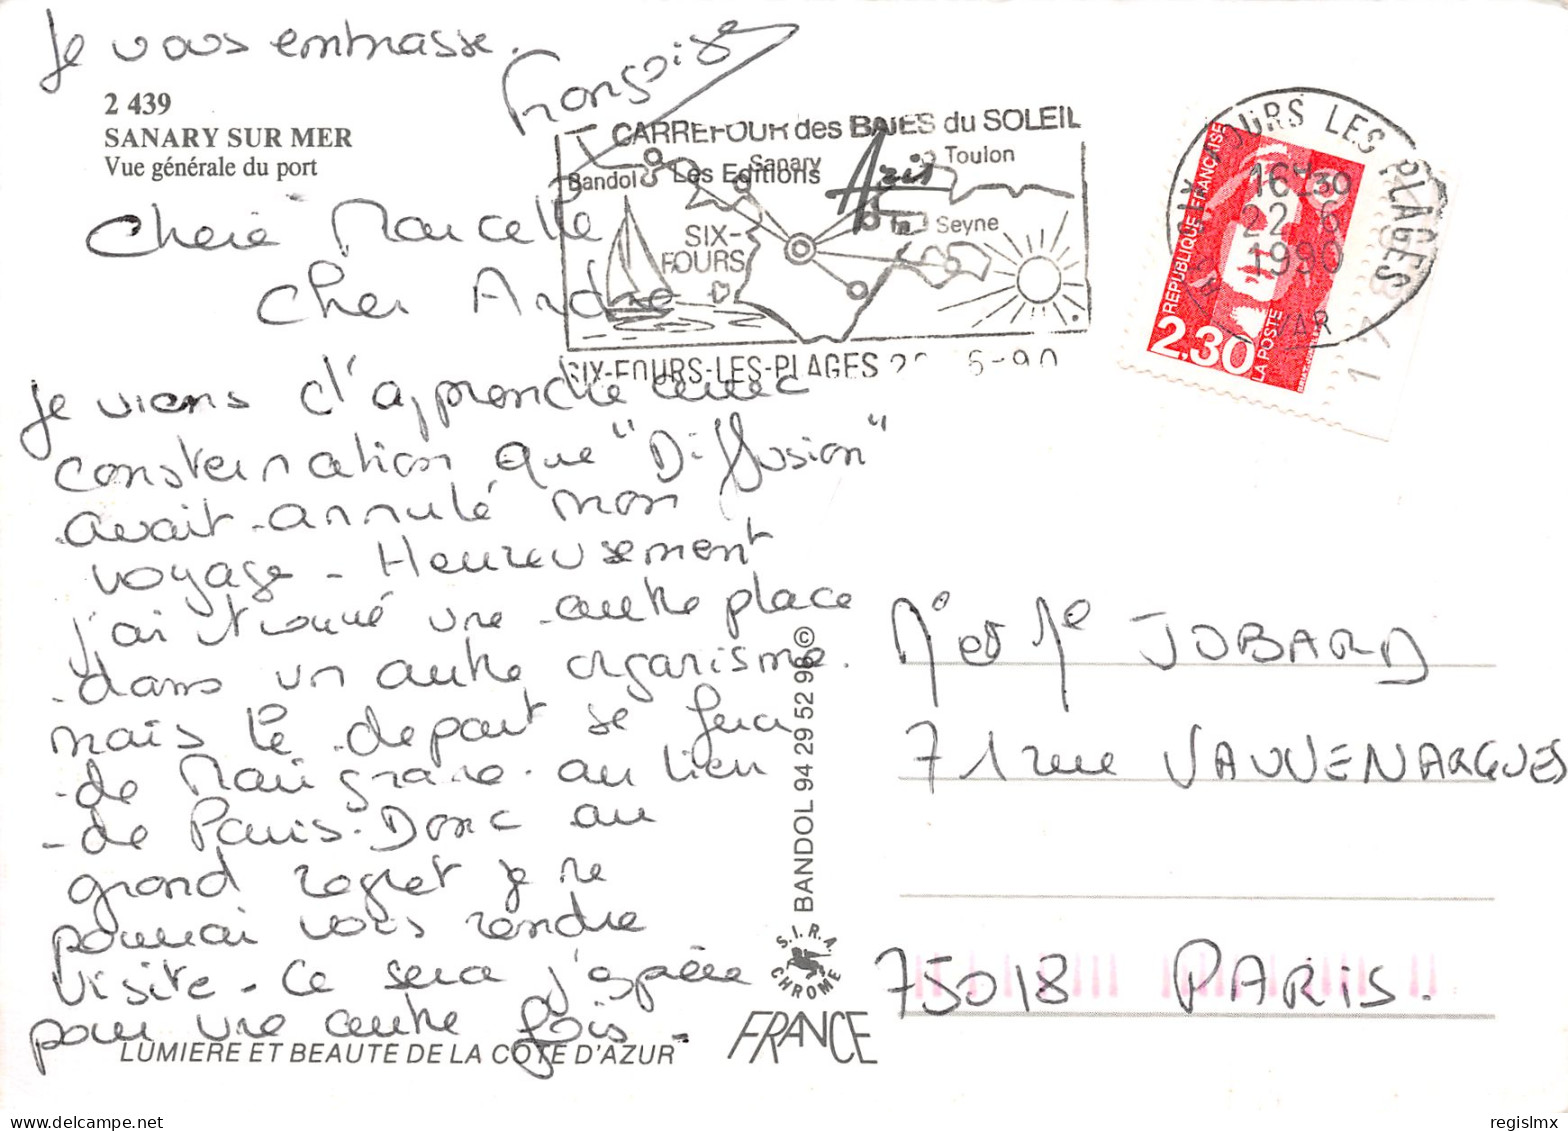 Je vous embrasse.
Françoise
2 439
SANARY SUR MER
Vue générale du port
Chère Marcelle
Cher André
Je viens d'apprendre avec
consternation que "Diffusion"
avait annulé mon
voyage - Heureusement
j'ai trouvé une autre place
dans un autre organisme.
mais le départ se fera
de Marignane au lieu
de Paris. Donc au
grand regret je ne
pourrai vous rendre
visite - Ce sera j'espère
pour une autre fois -
LUMIERE ET BEAUTE DE LA COTE D'AZUR
CARREFOUR des BAIES du SOLEIL
Bandol
Les Editions
Sanary
Azis
Toulon
La Seyne
SIX-
FOURS
SIX-FOURS-LES-PLAGES 22-6-90
FOURS LES PLAGES
16H30
22-6
1990
VAR
REPUBLIQUE FRANÇAISE
2,30
LA POSTE
BANDOL 94 29 52 98 ©
S.I.R.A.
CHROME
FRANCE
Mr et Me JOBARD
71 rue VAUVENARGUES
75018 PARIS.
regislmx